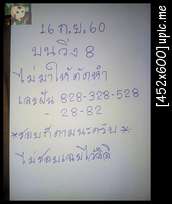 16 ก.ย. 60
บนวิ่ง 8
ไม่มาให้ตัดหัว
เลขฝัน 828-328-528
- 28-82
*ชอบก็ตามนะครับ*
ไม่ชอบเฉยไว้
[452x600] upic.me